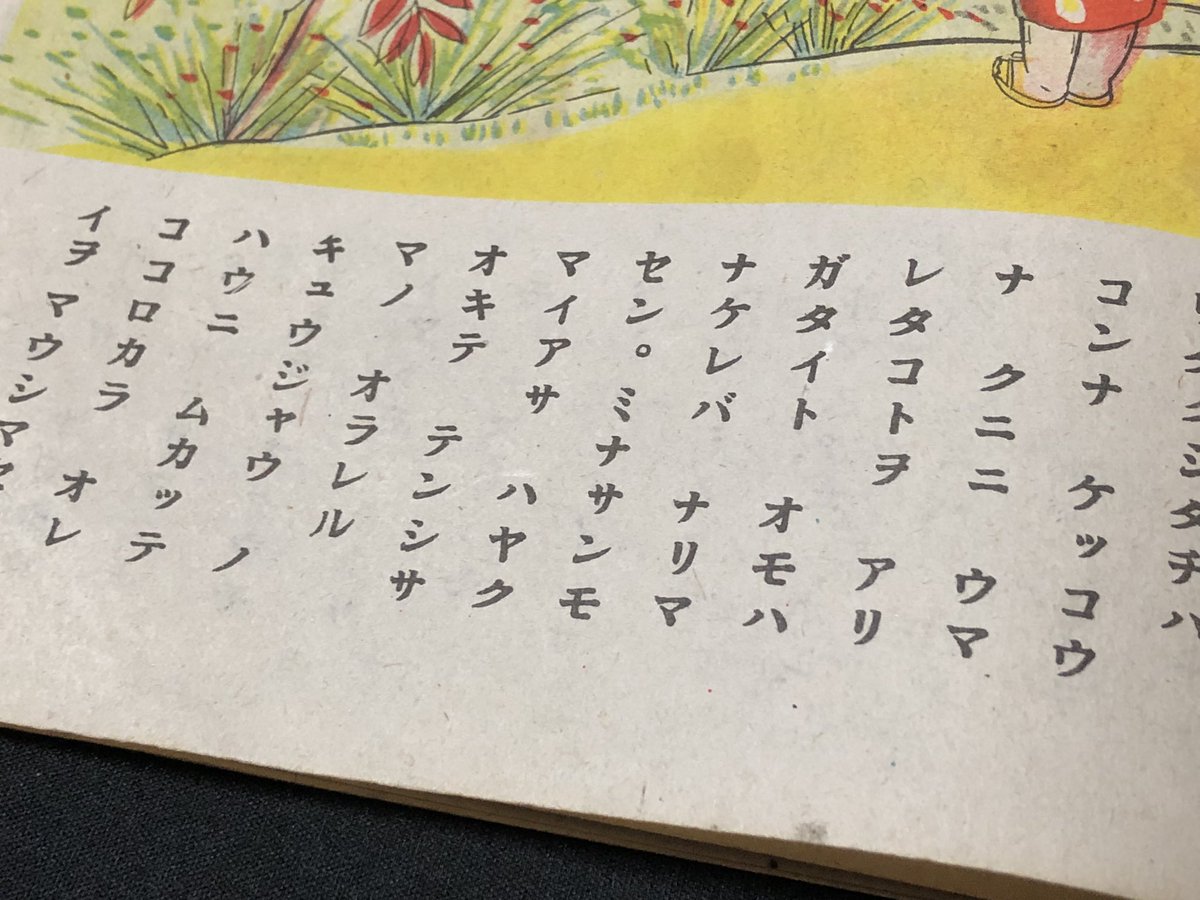 タチハ
コンナ ケッコウ
ナ クニニ ウマ
レタコトヲ アリ
ガタイト オモハ
ナケレバ ナリマ
セン。ミナサンモ
マイアサ ハヤク
オキテ テンシサ
マノ オラレル
キュウジャウ ノ
ハウニ ムカッテ
ココロカラ オレ
イヲ マウシマ